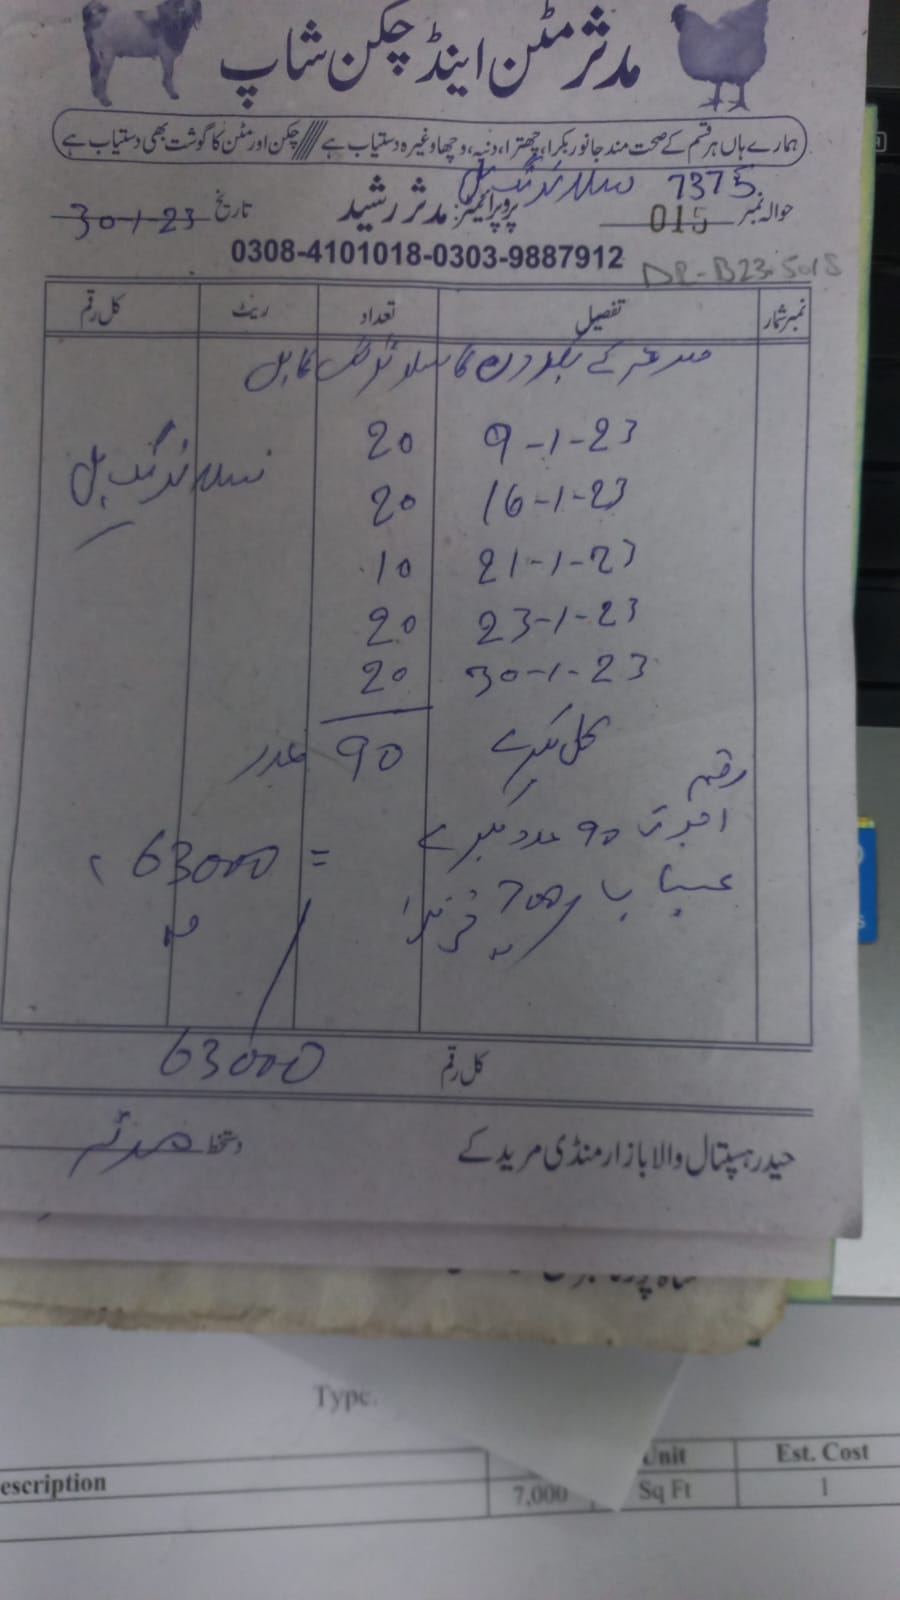 مدثر مٹن اینڈ چکن شاپ
ہمارے ہاں ہر قسم کے صحت مند جانور بکرا، چھترا، دنبہ، وچھا وغیرہ دستیاب ہے //// چکن اور مٹن کا گوشت بھی دستیاب ہے
سلاٹرنگ بل 7375
حوالہ نمبر 015 پروپرائیٹر: مدثر رشید تاریخ 30-1-23
0308-4101018-0303-9887912
DR-B23-5015
نمبر شمار تفصیل تعداد ریٹ کل رقم
صدقہ کے بکروں کا سلاٹرنگ کا بل
9-1-23 20
سلاٹرنگ بل
16-1-23 20
21-1-23 10
23-1-23 20
30-1-23 20
کل بکرے 90 عدد
رقم
اجرت 90 عدد بکرے = 63000
بحساب 700 فی بکرا
کل رقم 63000
حیدر ہسپتال والا بازار منڈی مریدکے دستخط مدثر
Type.
escription Unit Est. Cost
7,000 Sq Ft 1